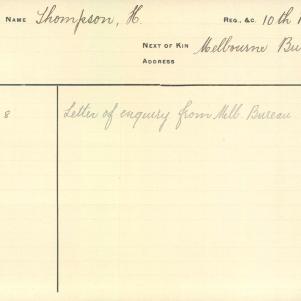 NAME Thompson, H. REG., &C. 10th
NEXT OF KIN Melbourne Bu
ADDRESS
8 Letter of enquiry from Melb. Bureau